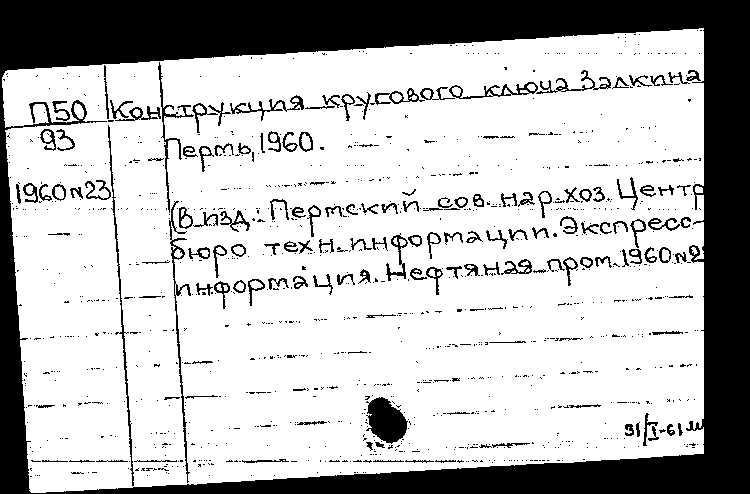 П50 Конструкция кругового ключа Залкина
93
Пермь, 1960.
1960 №23
(В изд.: Пермский сов. нар. хоз. Центр
бюро техн. информации. Экспресс-
информация. Нефтяная пром. 1960 №
31/I-61